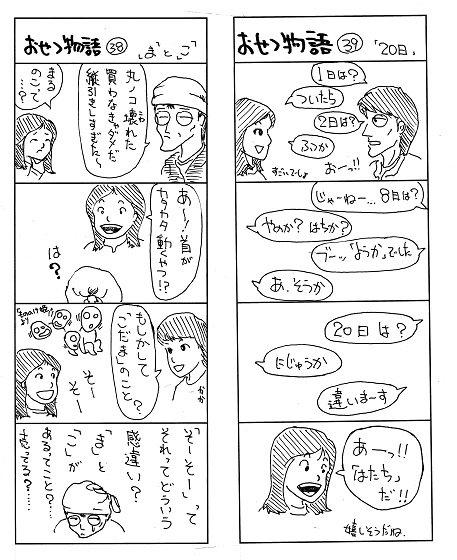 おせつ物語 ㊳ 「ま」と「こ」
丸ノコ壊れた
買わなきゃダメだ
縦引きしすぎた、
まる
のこって
……?
あ〜!首が
カタカタ動くやつ!?
は?
もののけ姫より
もしかして
「こだま」のこと?
かか
そー
そー
「そーそー」って
それってどういう
感違い?
「ま」と
「こ」が
あるってこと?……
おせつ物語 ㊴ 「20日」
1日は?
ついたち
2日は?
ふつか
おーっ!!
すごいでしょ
じゃーねー…8日は?
やめか?はちか?
ブーッ「ようか」でした
あ、そうか
20日は?
にじゅうか
違いまーす
あーっ!!
「はたち」
だ!!
嬉しそうだね.